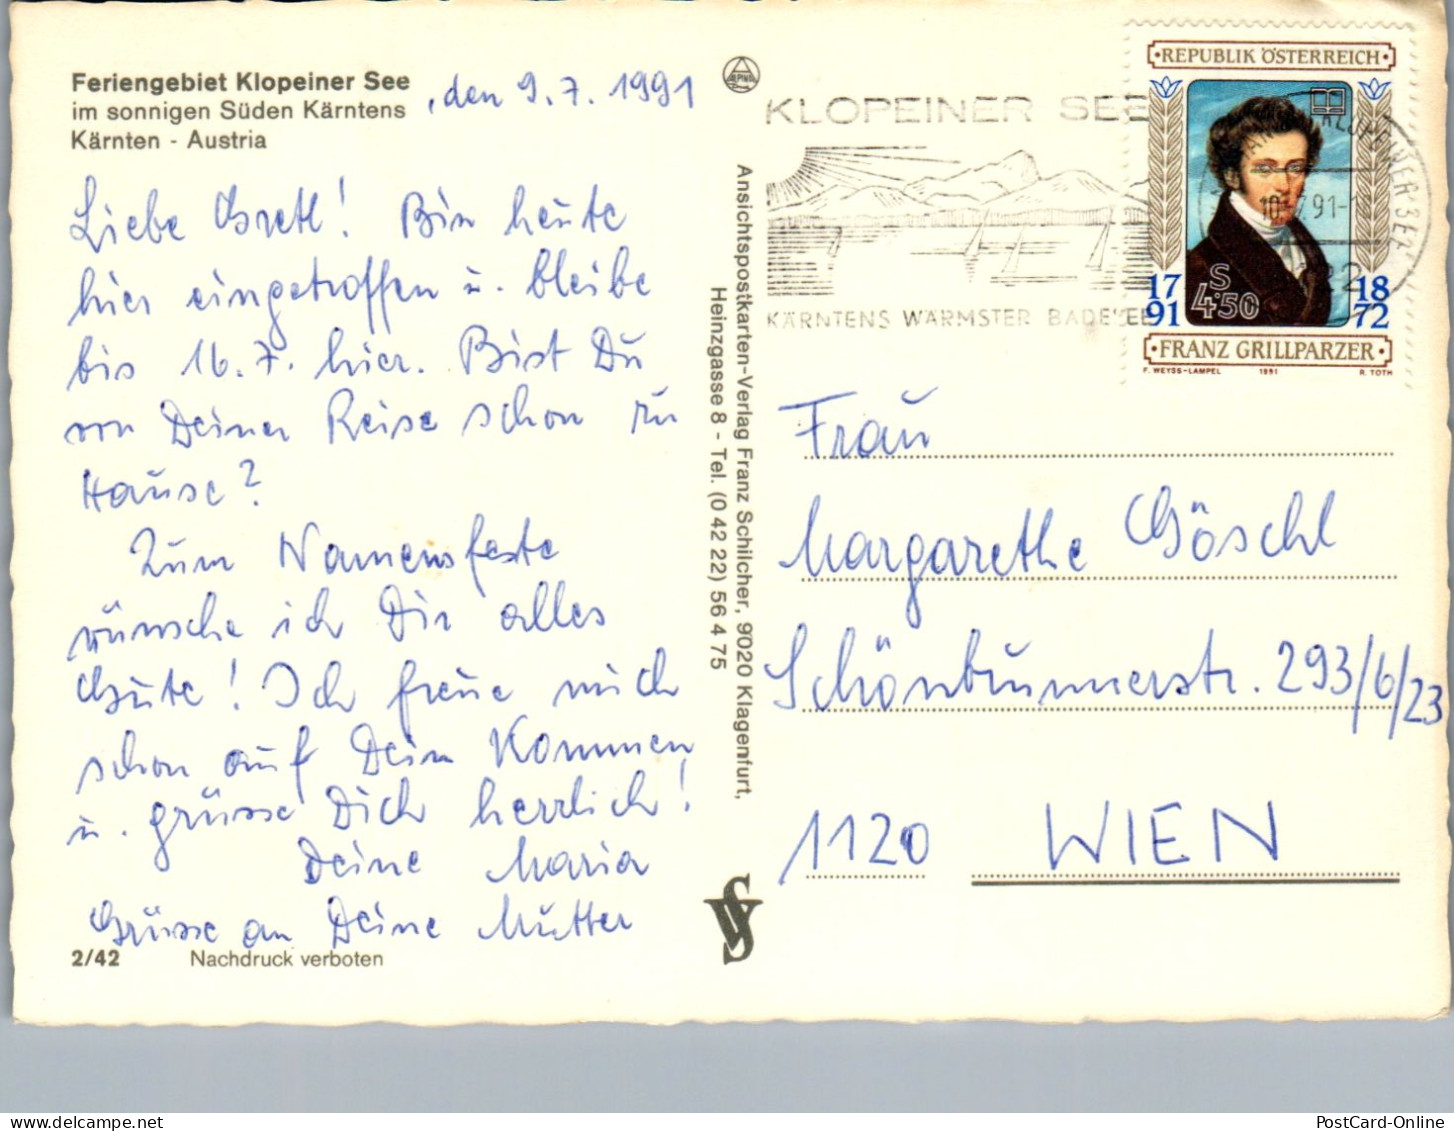 Feriengebiet Klopeiner See
im sonnigen Süden Kärntens
Kärnten - Austria
, den 9.7.1991
Liebe Gretl! Bin heute
hier eingetroffen u. bleibe
bis 16.7. hier. Bist Du
von Deiner Reise schon zu
Hause?
Zum Namensfeste
wünsche ich Dir alles
Gute! Ich freue mich
schon auf Dein Kommen
u. grüsse Dich herzlich!
Deine Maria
Grüsse an Deine Mutter
2/42 Nachdruck verboten
ALPINA
Ansichtspostkarten-Verlag Franz Schilcher, 9020 Klagenfurt,
Heinzgasse 8 - Tel. (0 42 22) 56 4 75
KLOPEINER SEE
KÄRNTENS WÄRMSTER BADESEE
KLOPEINER SEE
REPUBLIK ÖSTERREICH
S
4·50
17
91
18
72
FRANZ GRILLPARZER
F. WEYSS-LAMPEL 1991 R. TOTH
Frau
Margarethe Göschl
Schönbrunnerstr. 293/6/23
1120 WIEN
PostCard-Online